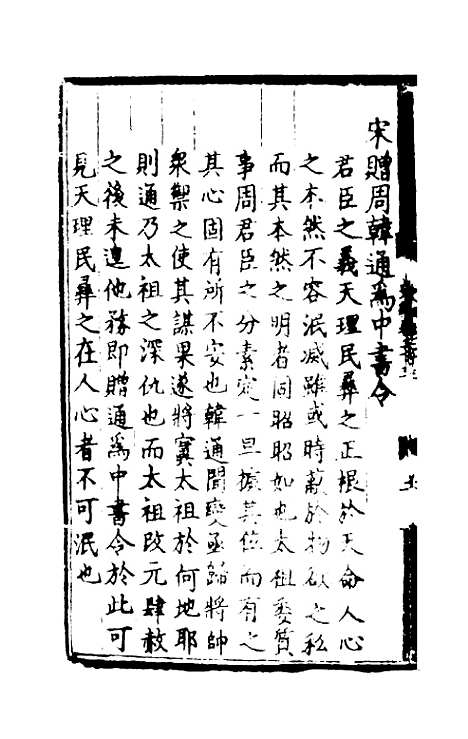 宋贈周韓通為中書令
君臣之義天理民彛之正根於天命人心
之本然不容泯滅雖或時蔽於物欲之私
而其本然之明者固昭昭如也太祖委質
事周君臣之分素定一旦據其位而有之
其心固有所不安也韓通聞變亟歸將帥
衆禦之使其謀果遂將寘太祖於何地耶
則通乃太祖之深仇也而太祖改元肆赦
之後未遑他務即贈通為中書令於此可
見天理民彛之在人心者不可泯也